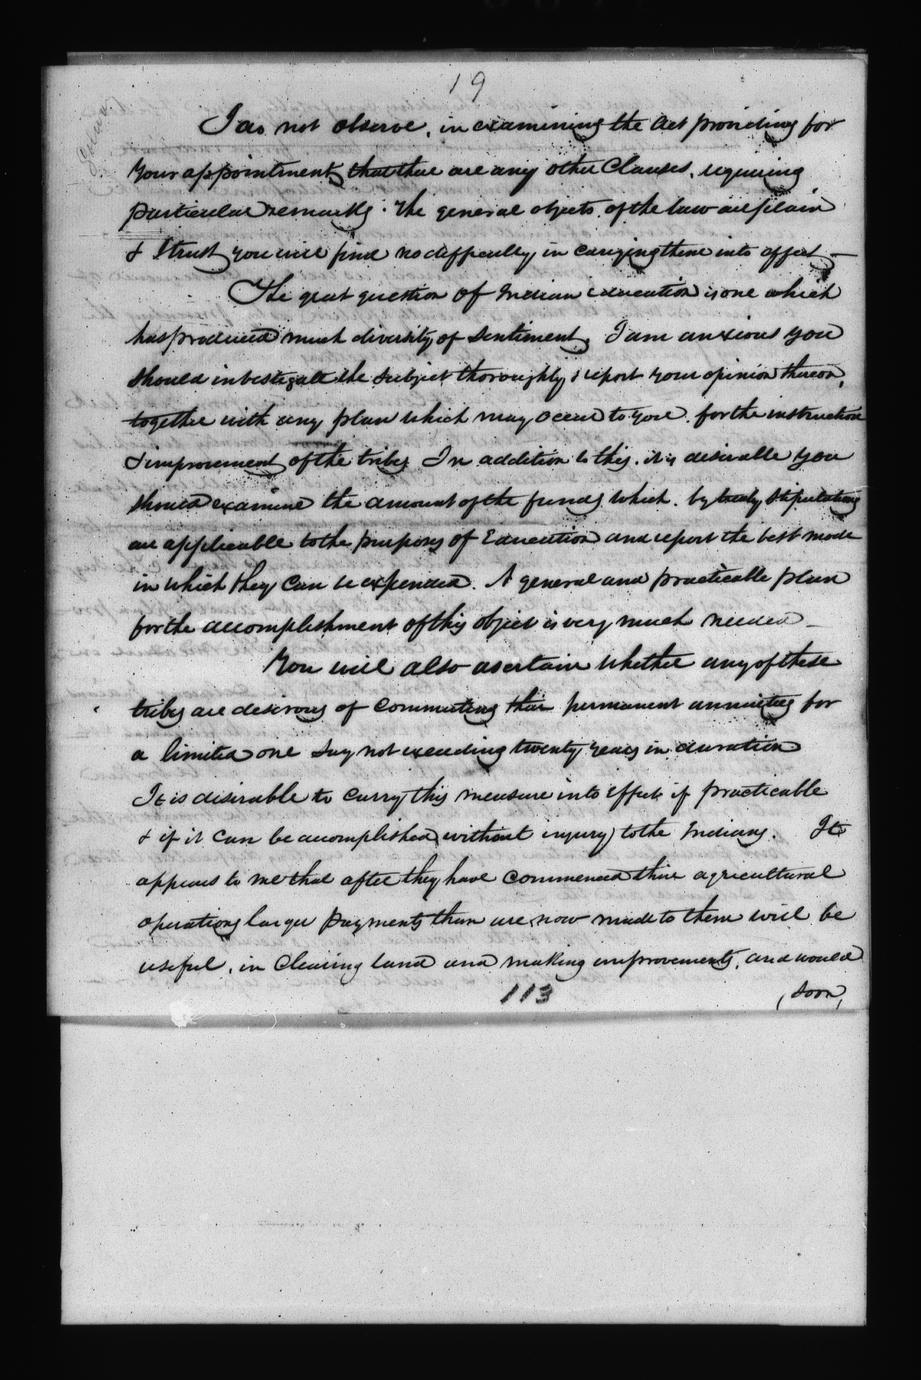 19
I do not observe, in examining the Act providing for
your appointment, that there are any other Clauses, requiring
particular remarks. The general objects of the law are plain
& I trust you will find no difficulty in carrying them into effect —
The great question of Indian education is one which
has produced much diversity of Sentiment, I am anxious you
should investigate the subject thoroughly & report your opinion thereon,
together with any plan which may occur to you for the instruction
& improvement of the tribes In addition to this, it is desirable you
should examine the amount of the funds which, by treaty stipulations
are applicable to the purposes of Education and report the best mode
in which they can be expended. A general and practicable plan
for the accomplishment of this object is very much needed —
You will also ascertain whether any of these
tribes are desirous of commuting their permanent annuities for
a limited one say not exceeding twenty years in duration
It is disirable to carry this measure into effect if practicable
& if it can be accomplished without injury to the Indians. It
appears to me that after they have commenced their agricultural
operations larger payments than are now made to them will be
useful, in Clearing land and making improvements, and would
113
(soon)